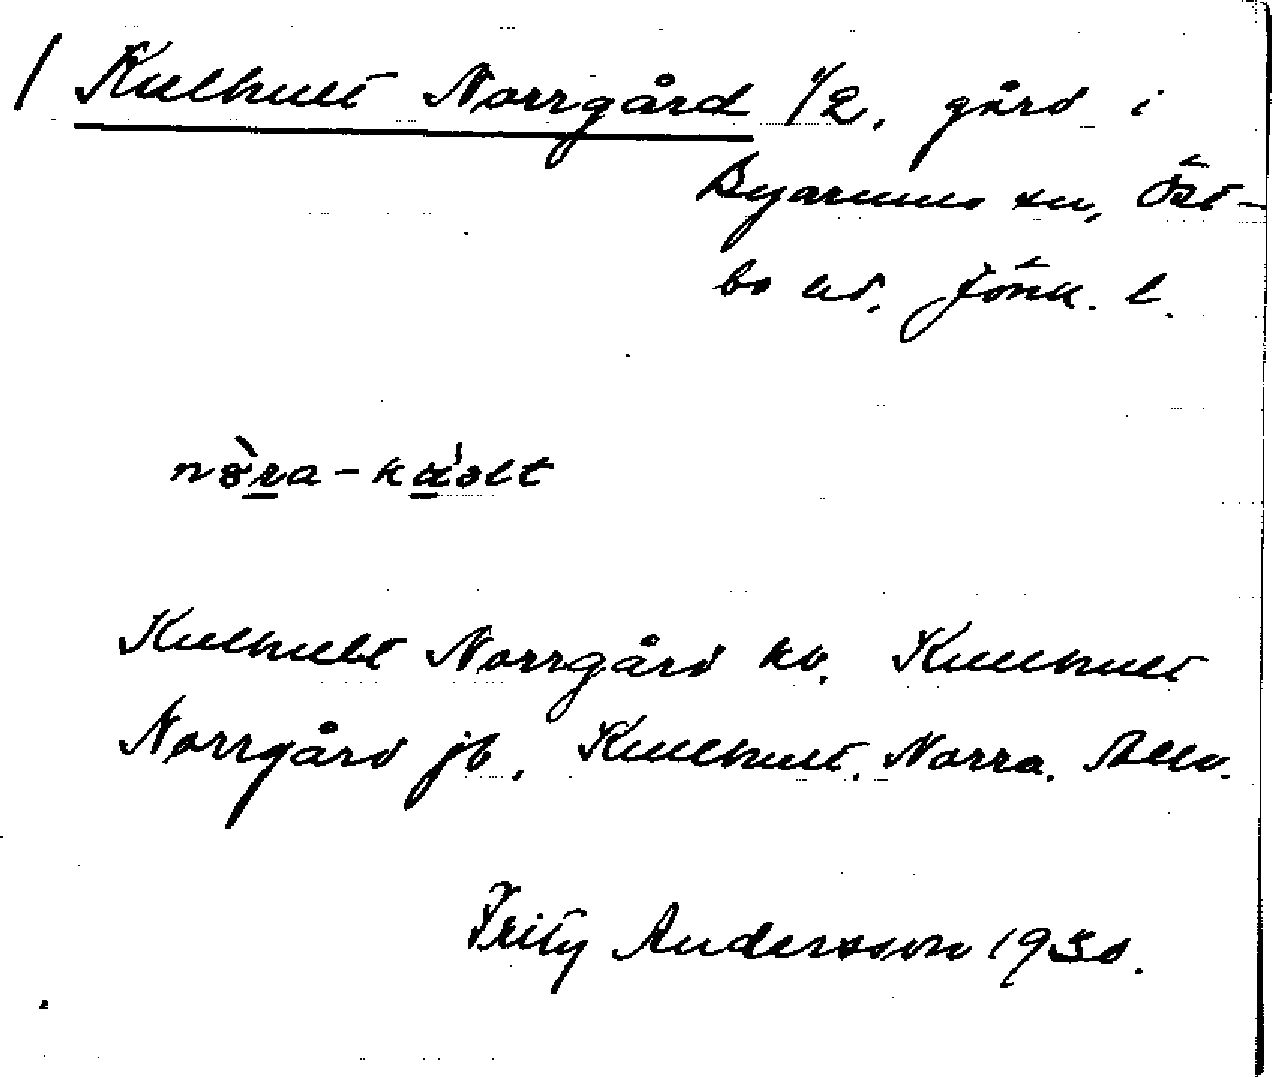 / Kulhult Norrgård 1/2, gård i
Byarums sn, Öst-
bo hd. Jönk. l.
Kulhult Norrgård kv. Kulhult
Norrgård jb. Kulhult. Norra.
Fritz Andersson 1930.